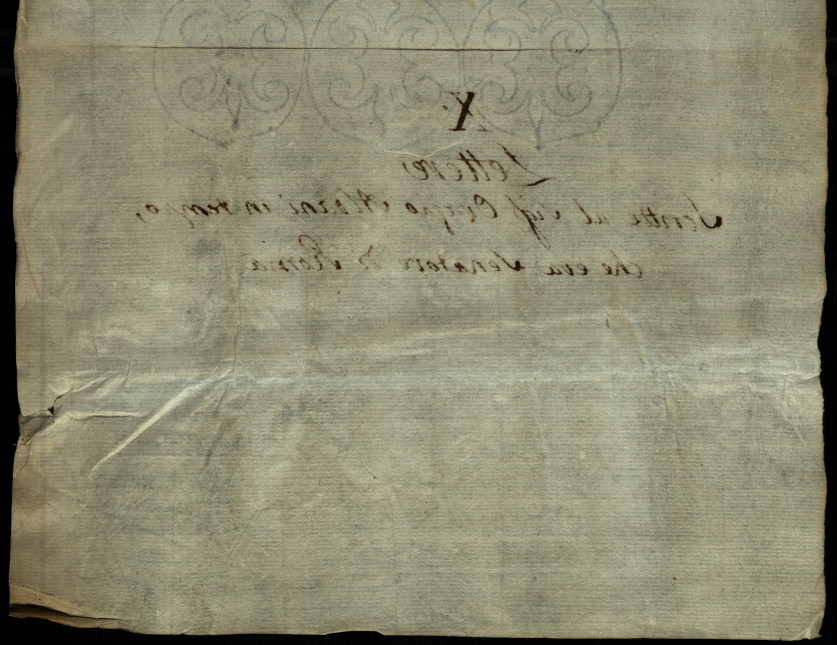 X.
Lettere
Scritte al Sig.r Orazio Albani in tempo,
che era Senatore di Roma